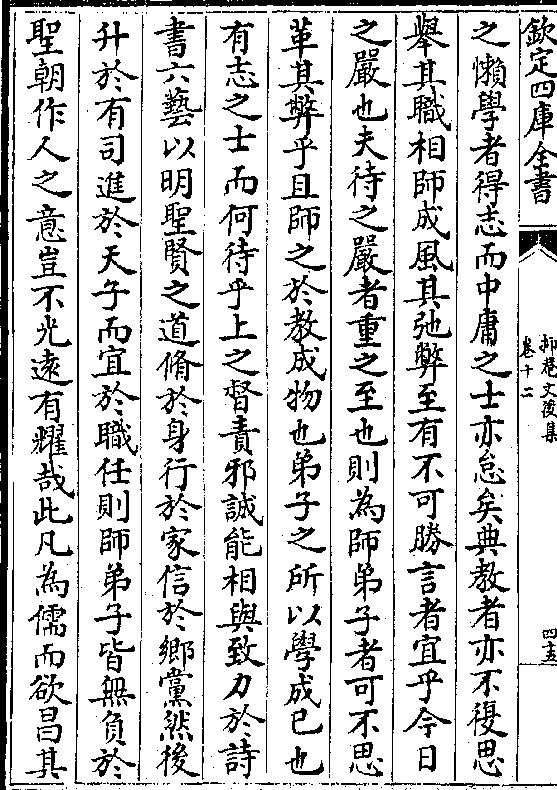 欽定四庫全書
抑菴文後集
卷十二
四十五
之懶學者得志而中庸之士亦怠矣典教者亦不復思
舉其職相師成風其弛弊至有不可勝言者宜乎今日
之嚴也夫待之嚴者重之至也則為師弟子者可不思
革其弊乎且師之於教成物也弟子之所以學成已也
有志之士而何待乎上之督責邪誠能相與致力於詩
書六藝以明聖賢之道脩於身行於家信於鄉黨然後
升於有司進於天子而宜於職任則師弟子皆無負於
聖朝作人之意豈不光遠有耀哉此凡為儒而欲昌其